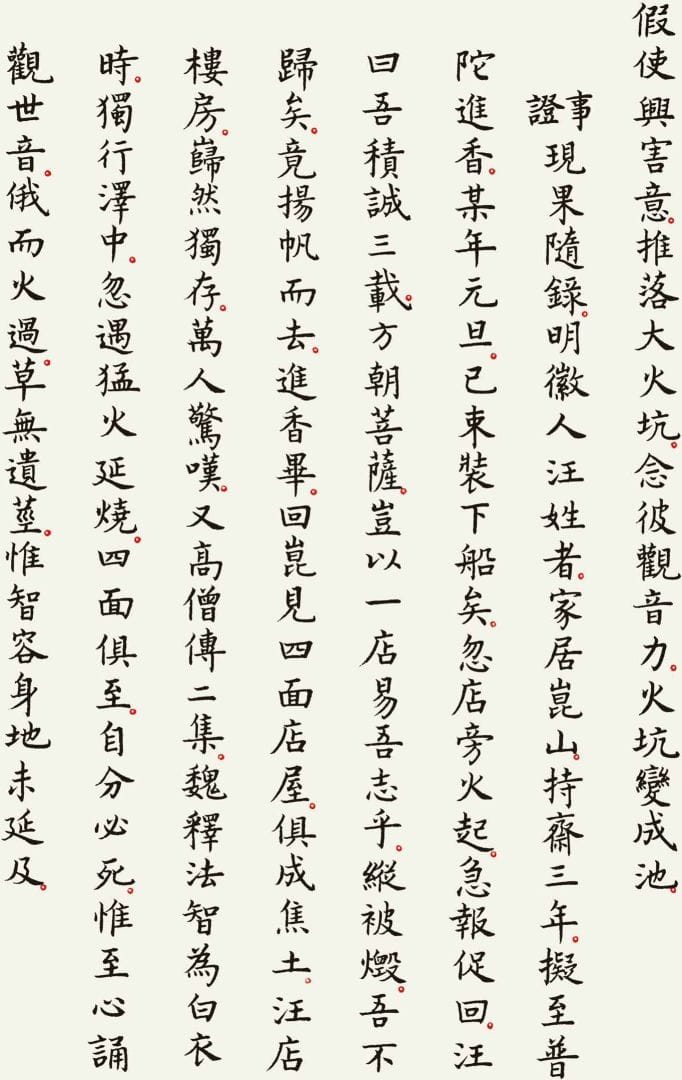 假使興害意。推落大火坑。念彼觀音力。火坑變成池。
證事 現果隨錄。明徽人汪姓者。家居崑山。持齋三年。擬至普
陀進香。某年元旦。已束裝下船矣。忽店旁火起。急報促回。汪
曰吾積誠三載。方朝菩薩。豈以一店易吾志乎。縱被燬。吾不
歸矣。竟揚帆而去。進香畢。回崑見四面店屋。俱成焦土。汪店
樓房。巋然獨存。萬人驚嘆。又高僧傳二集。魏釋法智為白衣
時。獨行澤中。忽遇猛火延燒。四面俱至。自分必死。惟至心誦
觀世音。俄而火過。草無遺莖。惟智容身地未延及。